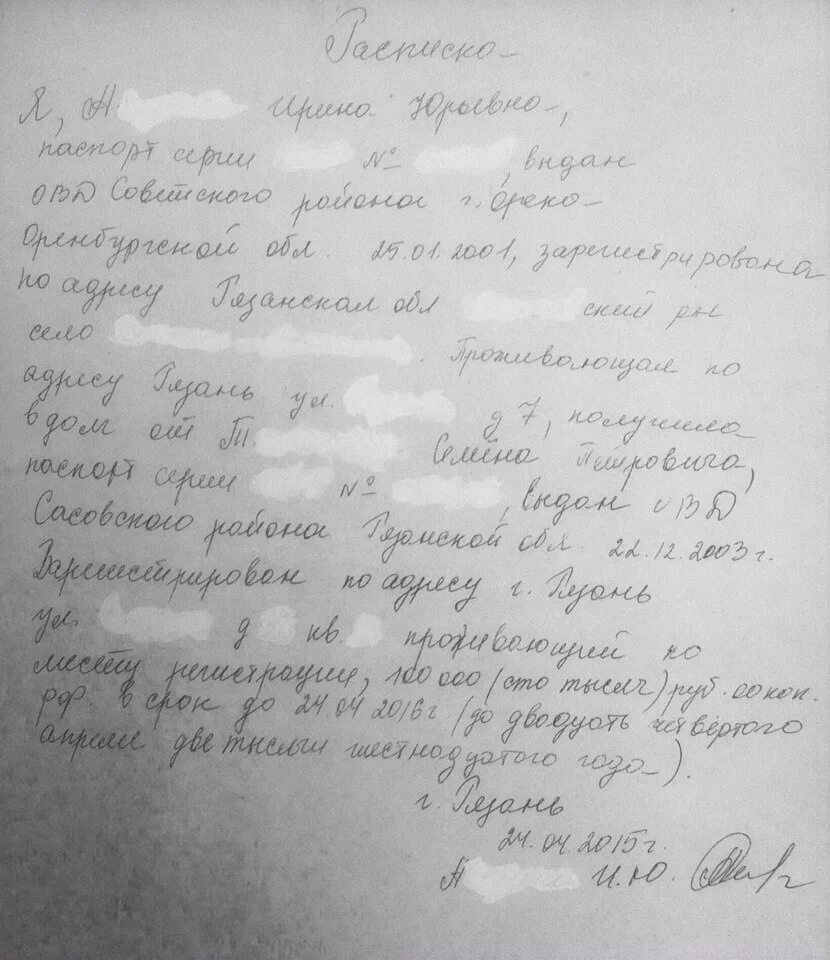 Расписка
Я, А. Ирина Юрьевна,
паспорт серии № , выдан
ОВД Советского района г. Орска
Оренбургской обл. 25.01.2001, зарегистрирована
по адресу Рязанская обл ский р-н
село . Проживающая по
адресу Рязань ул. д 7, получила
в долг от Т. Семёна Петровича,
паспорт серии № , выдан ОВД
Сасовского района Рязанской обл. 22.12.2003 г.
Зарегистрирован по адресу г. Рязань
ул. д кв. проживающий по
месту регистрации, 100 000 (сто тысяч) руб. 00 коп.
РФ в срок до 24.04.2016 г (до двадцать четвёртого
апреля две тысячи шестнадцатого года).
г. Рязань
24.04.2015 г.
А И.Ю.